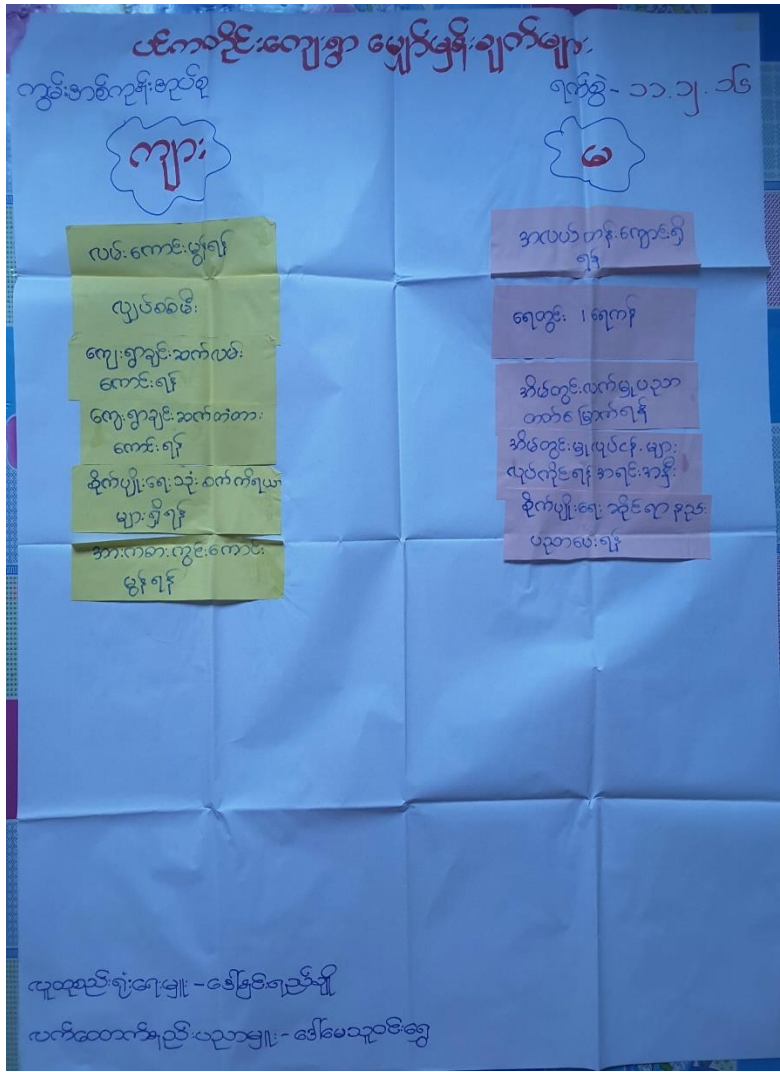 ပင်ကတိုင်းကျေးရွာ မျှော်မှန်းချက်များ
ကွမ်းအစ်ကုန်းအုပ်စု
ရက်စွဲ - ၁၁.၁၂.၁၆
ကျား
မ
လမ်းကောင်းမွန်ရန်
လျှပ်စစ်မီး
ကျေးရွာချင်းဆက်လမ်း
ကောင်းရန်
ကျေးရွာချင်းဆက်တံတား
ကောင်းရန်
စိုက်ပျိုးရေးသုံးစက်ကိရိယာ
များရှိရန်
အားကစားကွင်းကောင်း
မွန်ရန်
အလယ်တန်းကျောင်းရှိ
ရန်
ရေတွင်း ၊ ရေကန်
အိမ်တွင်းလက်မှုပညာ
တတ်မြောက်ရန်
အိမ်တွင်းမှုလုပ်ငန်းများ
လုပ်ကိုင်ရန်အရင်းအနှီး
စိုက်ပျိုးရေးဆိုင်ရာနည်း
ပညာပေးရန်
လူထုစည်းရုံးရေးမှူး - ဒေါ်နှင်းရည်ချို
လက်ထောက်နည်းပညာမှူး - ဒေါ်မေသူဝင်းရွှေ